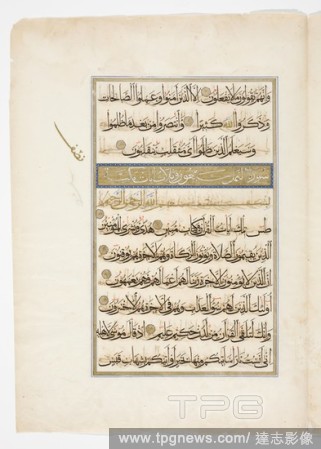 وأنهم يقولون ما لا يفعلون إلا الذين آمنوا وعملوا الصالحات
وذكروا الله كثيرا وانتصروا من بعد ما ظلموا
وسيعلم الذين ظلموا أي منقلب ينقلبون
سورة النمل
بسم الله الرحمن الرحيم
طس تلك آيات القرآن وكتاب مبين هدى وبشرى للمؤمنين
الذين يقيمون الصلاة ويؤتون الزكاة وهم بالآخرة هم يوقنون
إن الذين لا يؤمنون بالآخرة زينا لهم أعمالهم فهم يعمهون
أولئك الذين لهم سوء العذاب وهم في الآخرة هم الأخسرون
وإنك لتلقى القرآن من لدن حكيم عليم إذ قال موسى لأهله
إني آنست نارا سآتيكم منها بخبر أو آتيكم بشهاب قبس
نصف
TPG
www.tpgnews.com/ 達志影像